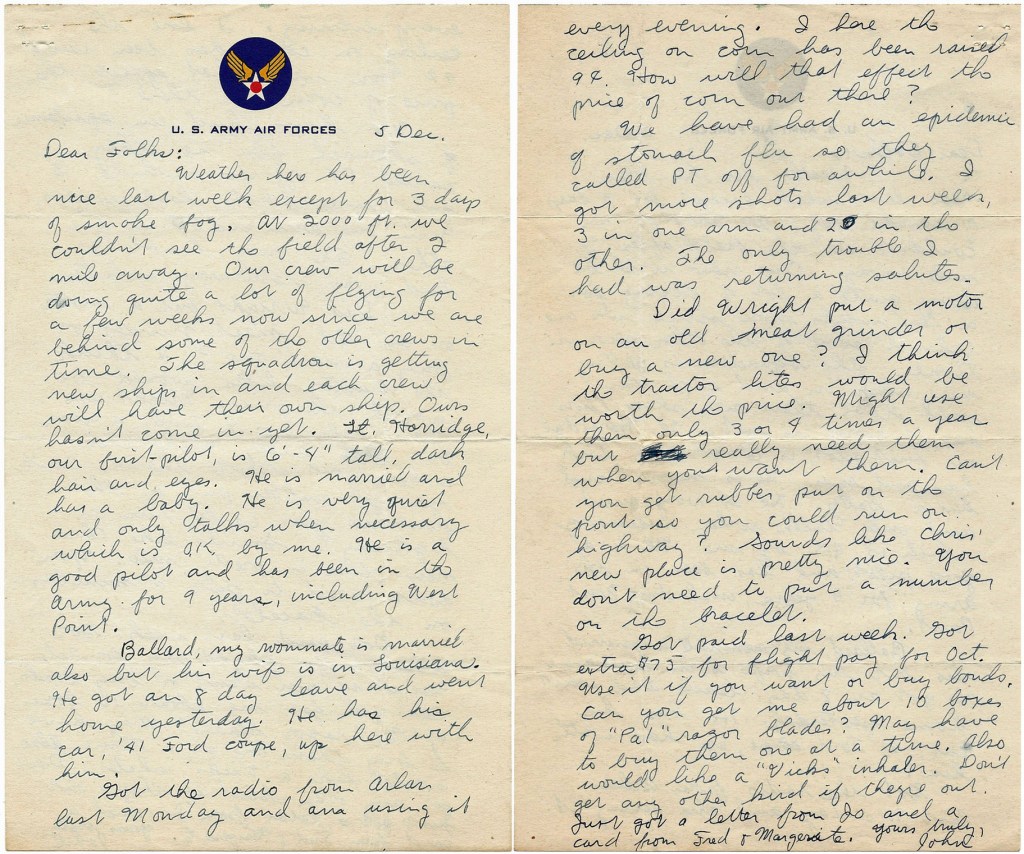 U. S. ARMY AIR FORCES 5 Dec.
Dear Folks:
Weather here has been
nice last week except for 3 days
of smoke fog. At 2000 ft. we
couldn't see the field after 2
mile away. Our crew will be
doing quite a lot of flying for
a few weeks now since we are
behind some of the other crews in
time. The squadron is getting
new ships in and each crew
will have their own ship. Ours
hasn't come in yet. Lt. Horridge,
our first pilot, is 6'-4" tall, dark
hair and eyes. He is married and
has a baby. He is very quiet
and only talks when necessary
which is O.K. by me. He is a
good pilot and has been in the
Army for 9 years, including West
Point.
Ballard, my roommate is married
also but his wife is in Louisiana.
He got an 8 day leave and went
home yesterday. He has his
car, '41 Ford coupe, up here with
him.
Got the radio from Arlan
last Monday and am using it
every evening. I here the
ceiling on corn has been raised
9¢. How will that effect the
price of corn out there?
We have had an epidemic
of stomach flu so they
called PT off for awhile. I
got more shots last week,
3 in one arm and 2 in the
other. The only trouble I
had was returning salutes.
Did Wright put a motor
on an old meat grinder or
buy a new one? I think
the tractor lites would be
worth the price. Might use
them only 3 or 4 times a year
but really need them
when you want them. Can't
you get rubber put on the
front so you could run on
highway? Sounds like Chris'
new place is pretty nice. You
don't need to put a number
on the bracelet.
Got paid last week. Got
extra $75 for flight pay for Oct.
Use it if you want or buy bonds.
Can you get me about 10 boxes
of "Pal" razor blades? May have
to buy them one at a time. Also
would like a "Vicks" inhaler. Don't
get any other kind if theyre out.
Just got a letter from Jo and a
card from Fred & Margerite. Yours truly,
John